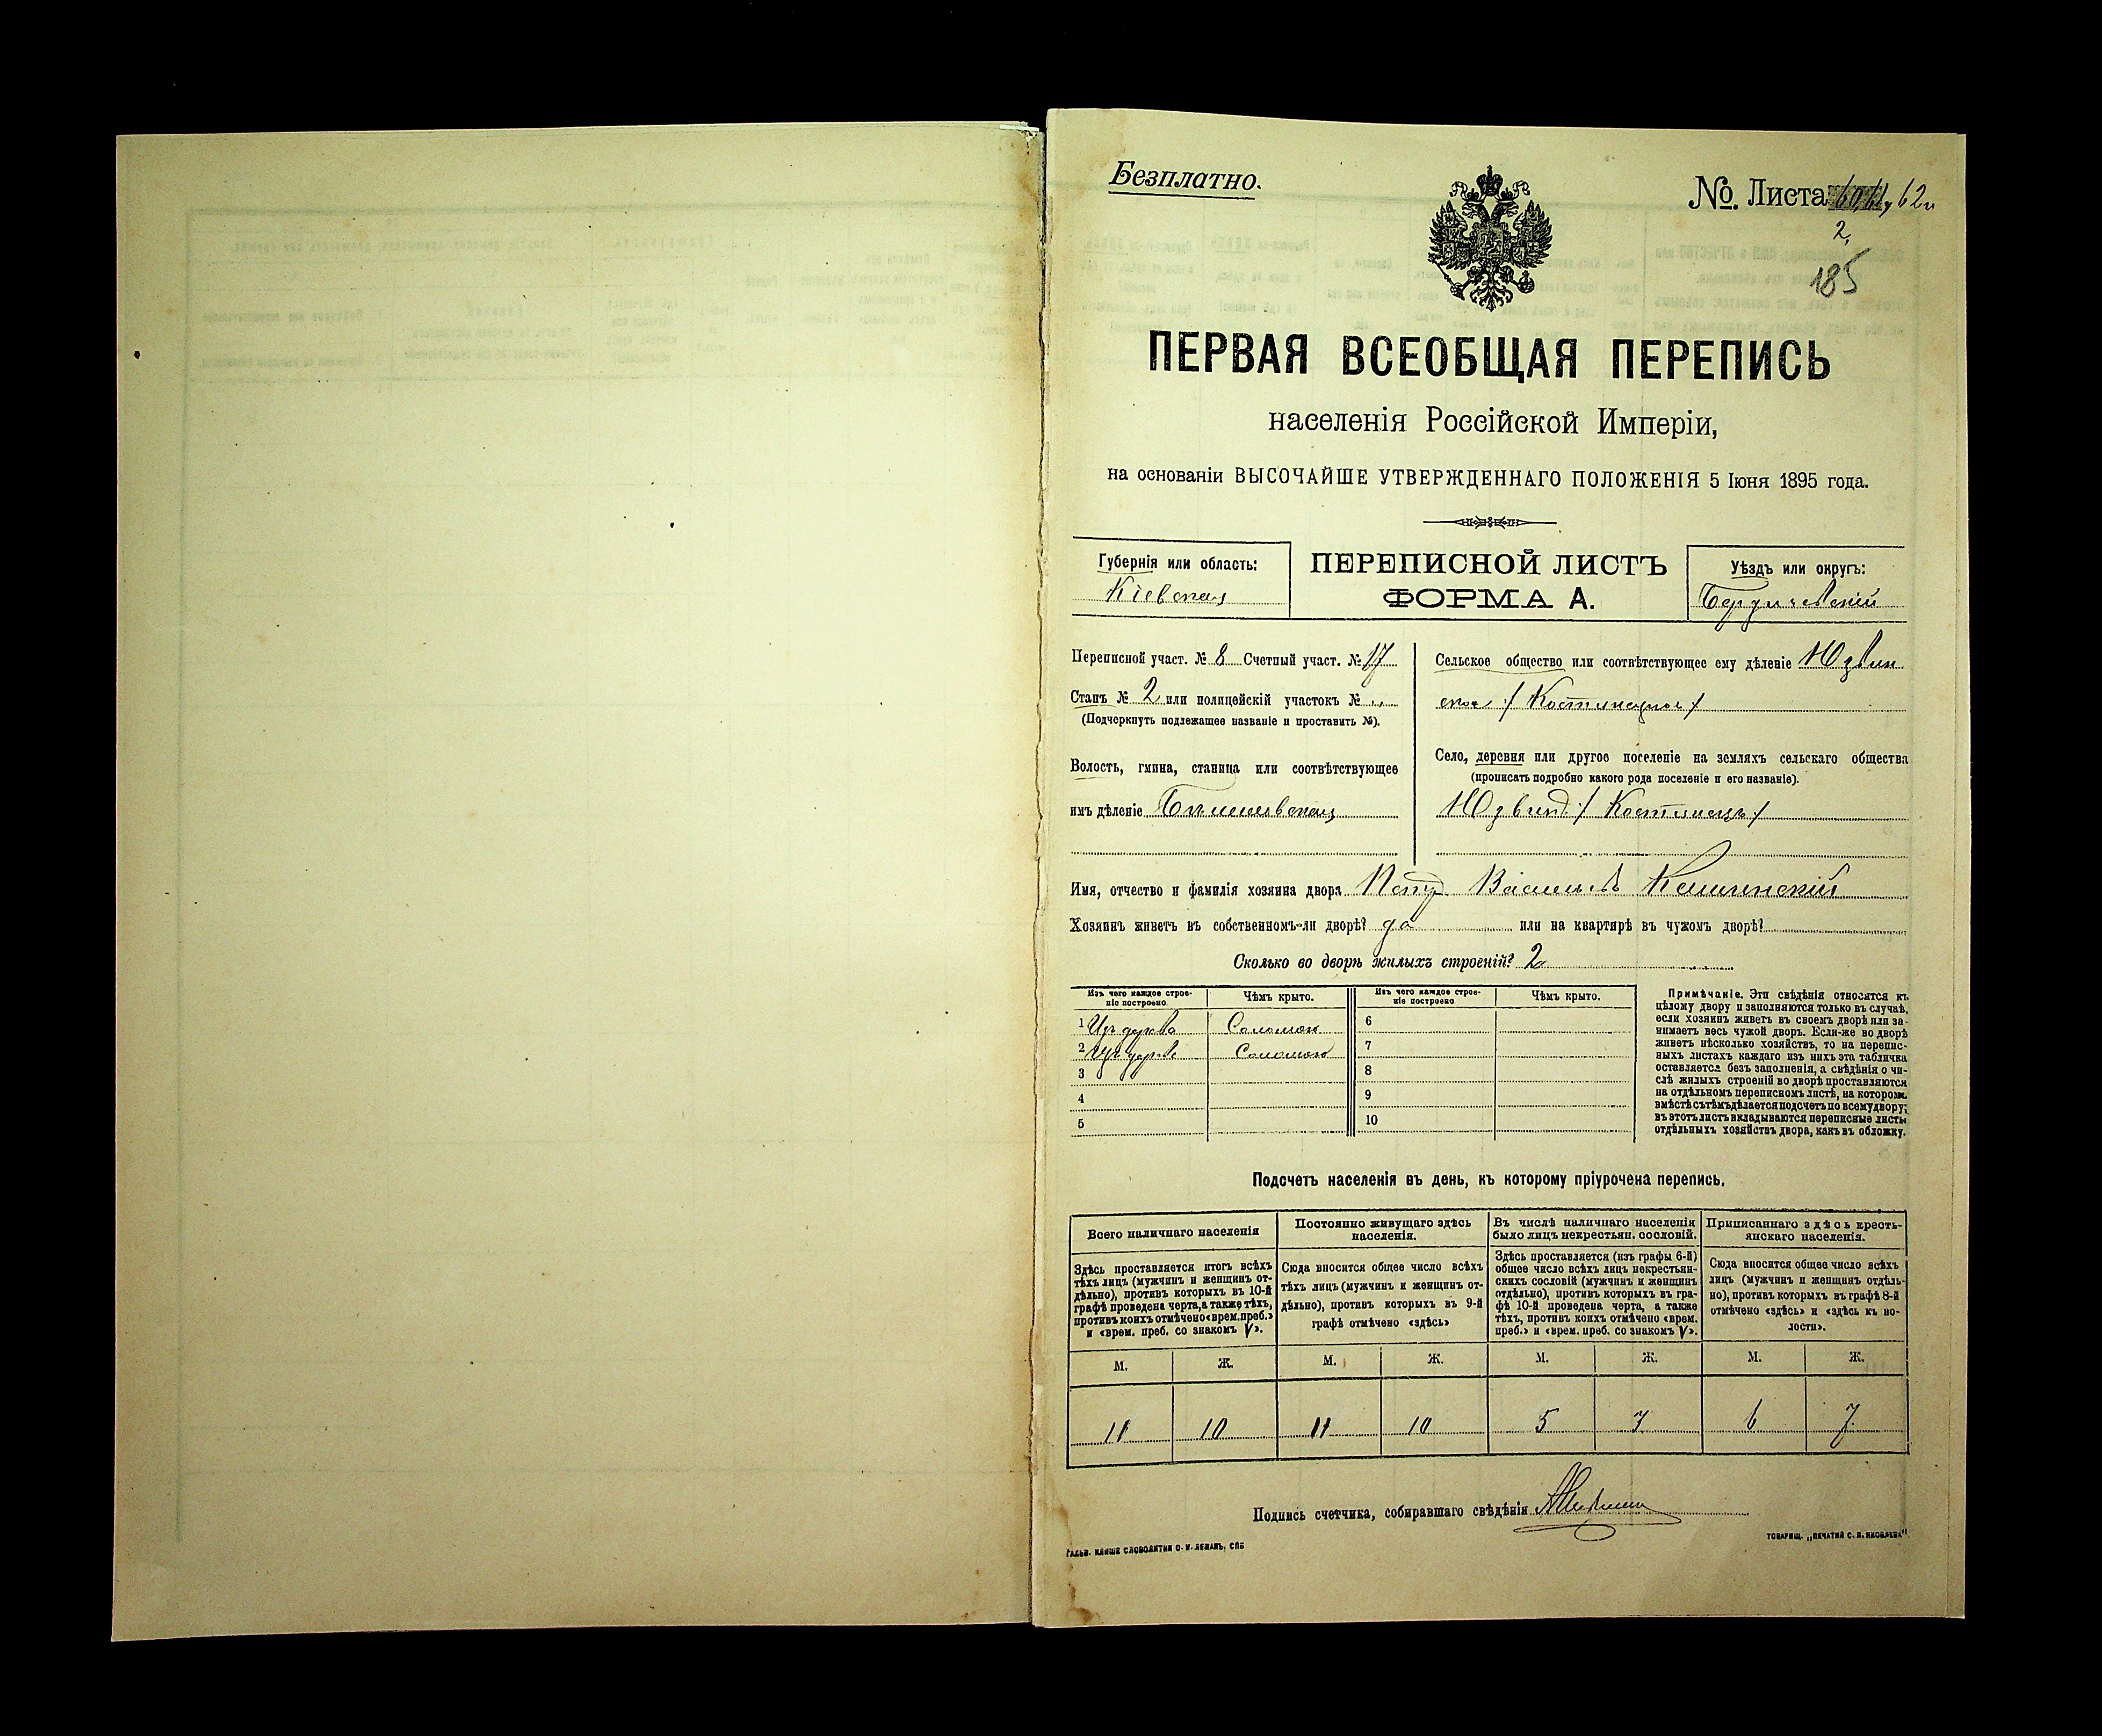 Безплатно.
№. Листа 60, 61, 62
2,
185
ПЕРВАЯ ВСЕОБЩАЯ ПЕРЕПИСЬ
населенія Россійской Имперіи,
на основаніи ВЫСОЧАЙШЕ УТВЕРЖДЕННАГО ПОЛОЖЕНІЯ 5 Іюня 1895 года.
Губернія или область:
Кіевская
ПЕРЕПИСНОЙ ЛИСТЪ
ФОРМА А.
Уѣздъ или округъ:
Бердичевскій
Переписной участ. № 8 Счетный участ. № 17
Станъ № 2 или полицейскій участокъ № „
(Подчеркнуть подлежащее названіе и проставить №).
Волость, гмина, станица или соотвѣтствующее
имъ дѣленіе
Сельское общество или соотвѣтствующее ему дѣленіе Юзвин
ское / Костинецкое /
Село, деревня или другое поселеніе на земляхъ сельскаго общества
(прописать подробно какого рода поселеніе и его названіе).
Юзвинъ / Костинецъ /
Имя, отчество и фамилія хозяина двора Петръ Васильевъ
Хозяинъ живетъ въ собственномъ-ли дворѣ? да или на квартирѣ въ чужомъ дворѣ?
Сколько во дворѣ жилыхъ строеній? 2
Изъ чего каждое строе-
ніе построено
Чѣмъ крыто.
Изъ чего каждое строе-
ніе построено
Чѣмъ крыто.
1 Изъ дерева Соломою 6
2 Изъ дерева Соломою 7
3 8
4 9
5 10
Примѣчаніе. Эти свѣдѣнія относятся къ
цѣлому двору и заполняются только въ случаѣ,
если хозяинъ живетъ въ своемъ дворѣ или за-
нимаетъ весь чужой дворъ. Если-же во дворѣ
живетъ нѣсколько хозяйствъ, то на перепис-
ныхъ листахъ каждаго изъ нихъ эта табличка
оставляется безъ заполненія, а свѣдѣнія о чи-
слѣ жилыхъ строеній во дворѣ проставляются
на отдѣльномъ переписномъ листѣ, на которомъ
вмѣстѣ съ тѣмъ дѣлается подсчетъ по всему двору;
въ этотъ листъ вкладываются переписные листы
отдѣльныхъ хозяйствъ двора, какъ въ обложку.
Подсчетъ населенія въ день, къ которому пріурочена перепись.
Всего наличнаго населенія
Здѣсь проставляется итогъ всѣхъ
тѣхъ лицъ (мужчинъ и женщинъ от-
дѣльно), противъ которыхъ въ 10-й
графѣ проведена черта, а также тѣхъ,
противъ коихъ отмѣчено «врем. преб.»
и «врем. преб. со знакомъ V».
Постоянно живущаго здѣсь
населенія.
Сюда вносится общее число всѣхъ
тѣхъ лицъ (мужчинъ и женщинъ от-
дѣльно), противъ которыхъ въ 9-й
графѣ отмѣчено «здѣсь»
Въ числѣ наличнаго населенія
было лицъ некрестьян. сословій.
Здѣсь проставляется (изъ графы 6-й)
общее число всѣхъ лицъ некрестьян-
скихъ сословій (мужчинъ и женщинъ
отдѣльно), противъ которыхъ въ гра-
фѣ 10-й проведена черта, а также
тѣхъ, противъ коихъ отмѣчено «врем.
преб.» и «врем. преб. со знакомъ V».
Приписаннаго здѣсь кресть-
янскаго населенія.
Сюда вносится общее число всѣхъ
лицъ (мужчинъ и женщинъ отдѣль-
но), противъ которыхъ въ графѣ 8-й
отмѣчено «здѣсь» и «здѣсь къ во-
лости».
М. Ж. М. Ж. М. Ж. М. Ж.
11 10 11 10 5 3 6 7
Подпись счетчика, собиравшаго свѣдѣнія
ГАЛЬВ. КЛИШЕ СЛОВОЛИТНИ О. И. ЛЕМАНЪ, СПБ
ТОВАРИЩ. „ПЕЧАТНЯ С. П. ЯКОВЛЕВА"